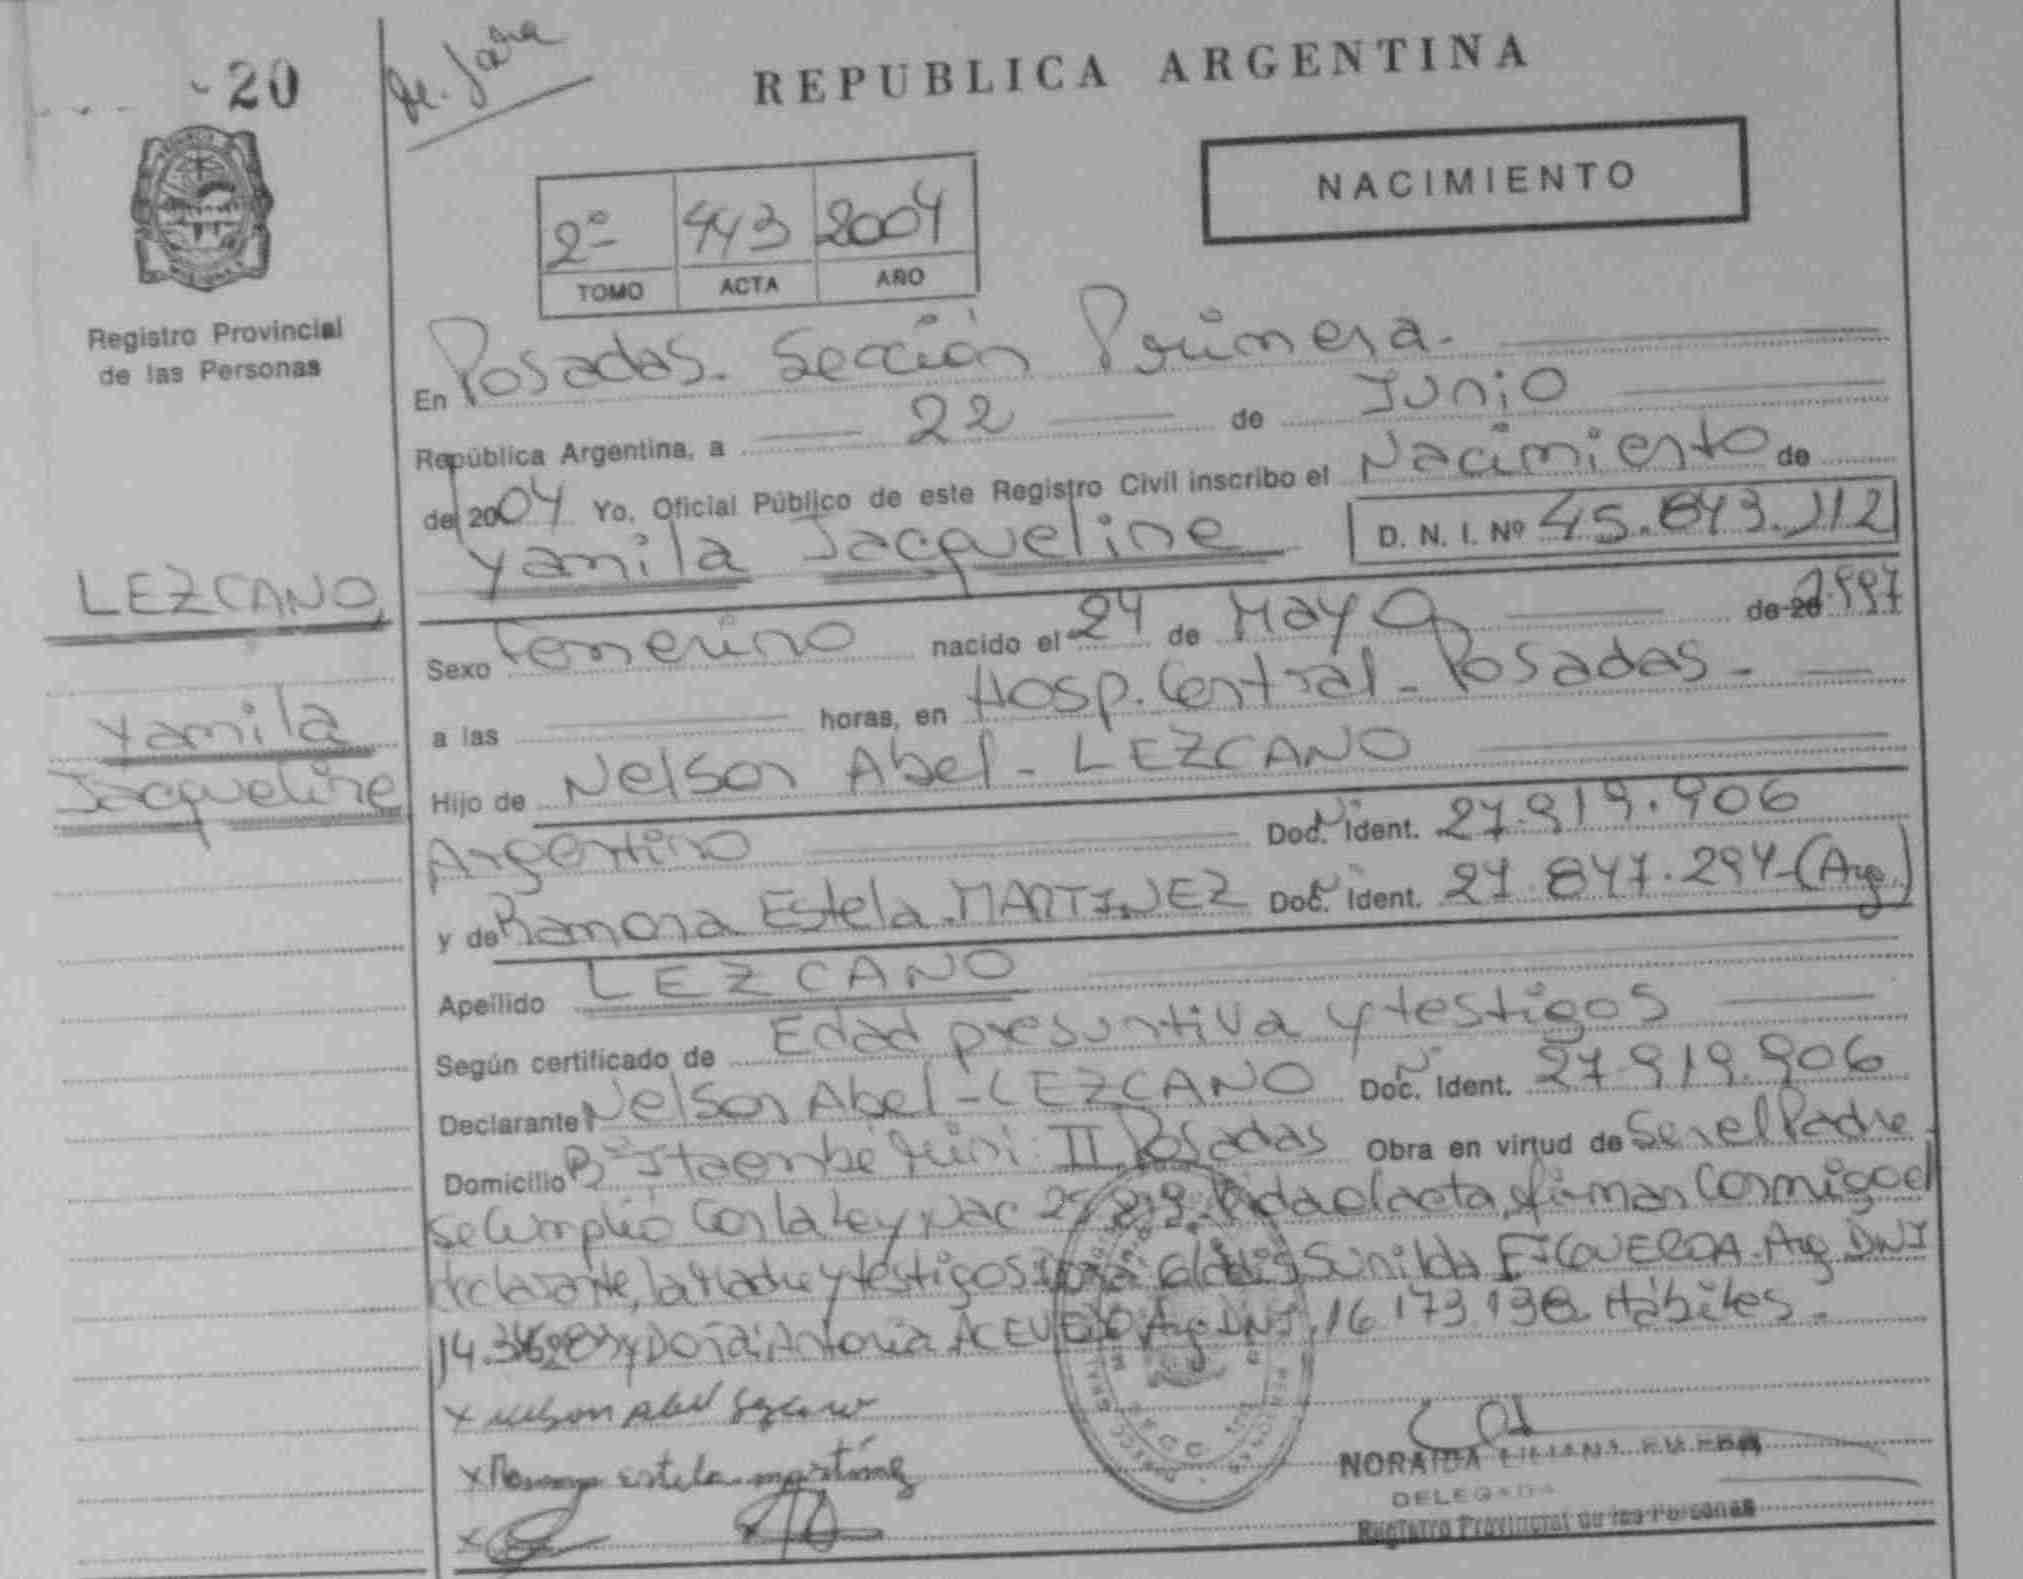 20
REPUBLICA ARGENTINA
NACIMIENTO
2º 443 2004
TOMO ACTA AÑO
Registro Provincial
de las Personas
En Posadas. Sección Primera.
República Argentina, a 22 de Junio
de 2004 Yo, Oficial Público de este Registro Civil inscribo el Nacimiento de
Yamila Jacqueline D. N. I. Nº 45.843.112
LEZCANO,
Yamila
Jacqueline
Sexo Femenino nacido el 24 de Mayo de 20 1.997
a las horas, en Hosp. Central - Posadas -
Hijo de Nelson Abel - LEZCANO
Argentino Doc. Ident. 27.919.906
y de Ramona Estela MARTINEZ Doc. Ident. 27.847.294-(Arg.)
Apellido LEZCANO
Según certificado de Edad presuntiva y testigos
Declarante Nelson Abel - LEZCANO Doc. Ident. 27.919.906
Domicilio Bº Itaembé Miní II Posadas Obra en virtud de Ser el Padre.
Se Cumplió Con la Ley Nac 25.819. el acta, firman Conmigo el
declarante, la Madre y testigos Sunilda FIGUEROA. Arg DNI
y Doña: Antonia ACEVEDO Arg DNI. 16.173.198 Hábiles.
x Nelson Abel Lezcano
x Ramona Estela Martínez
x
NORAIDA LILIANA
DELEGADA
Registro Provincial de las Personas